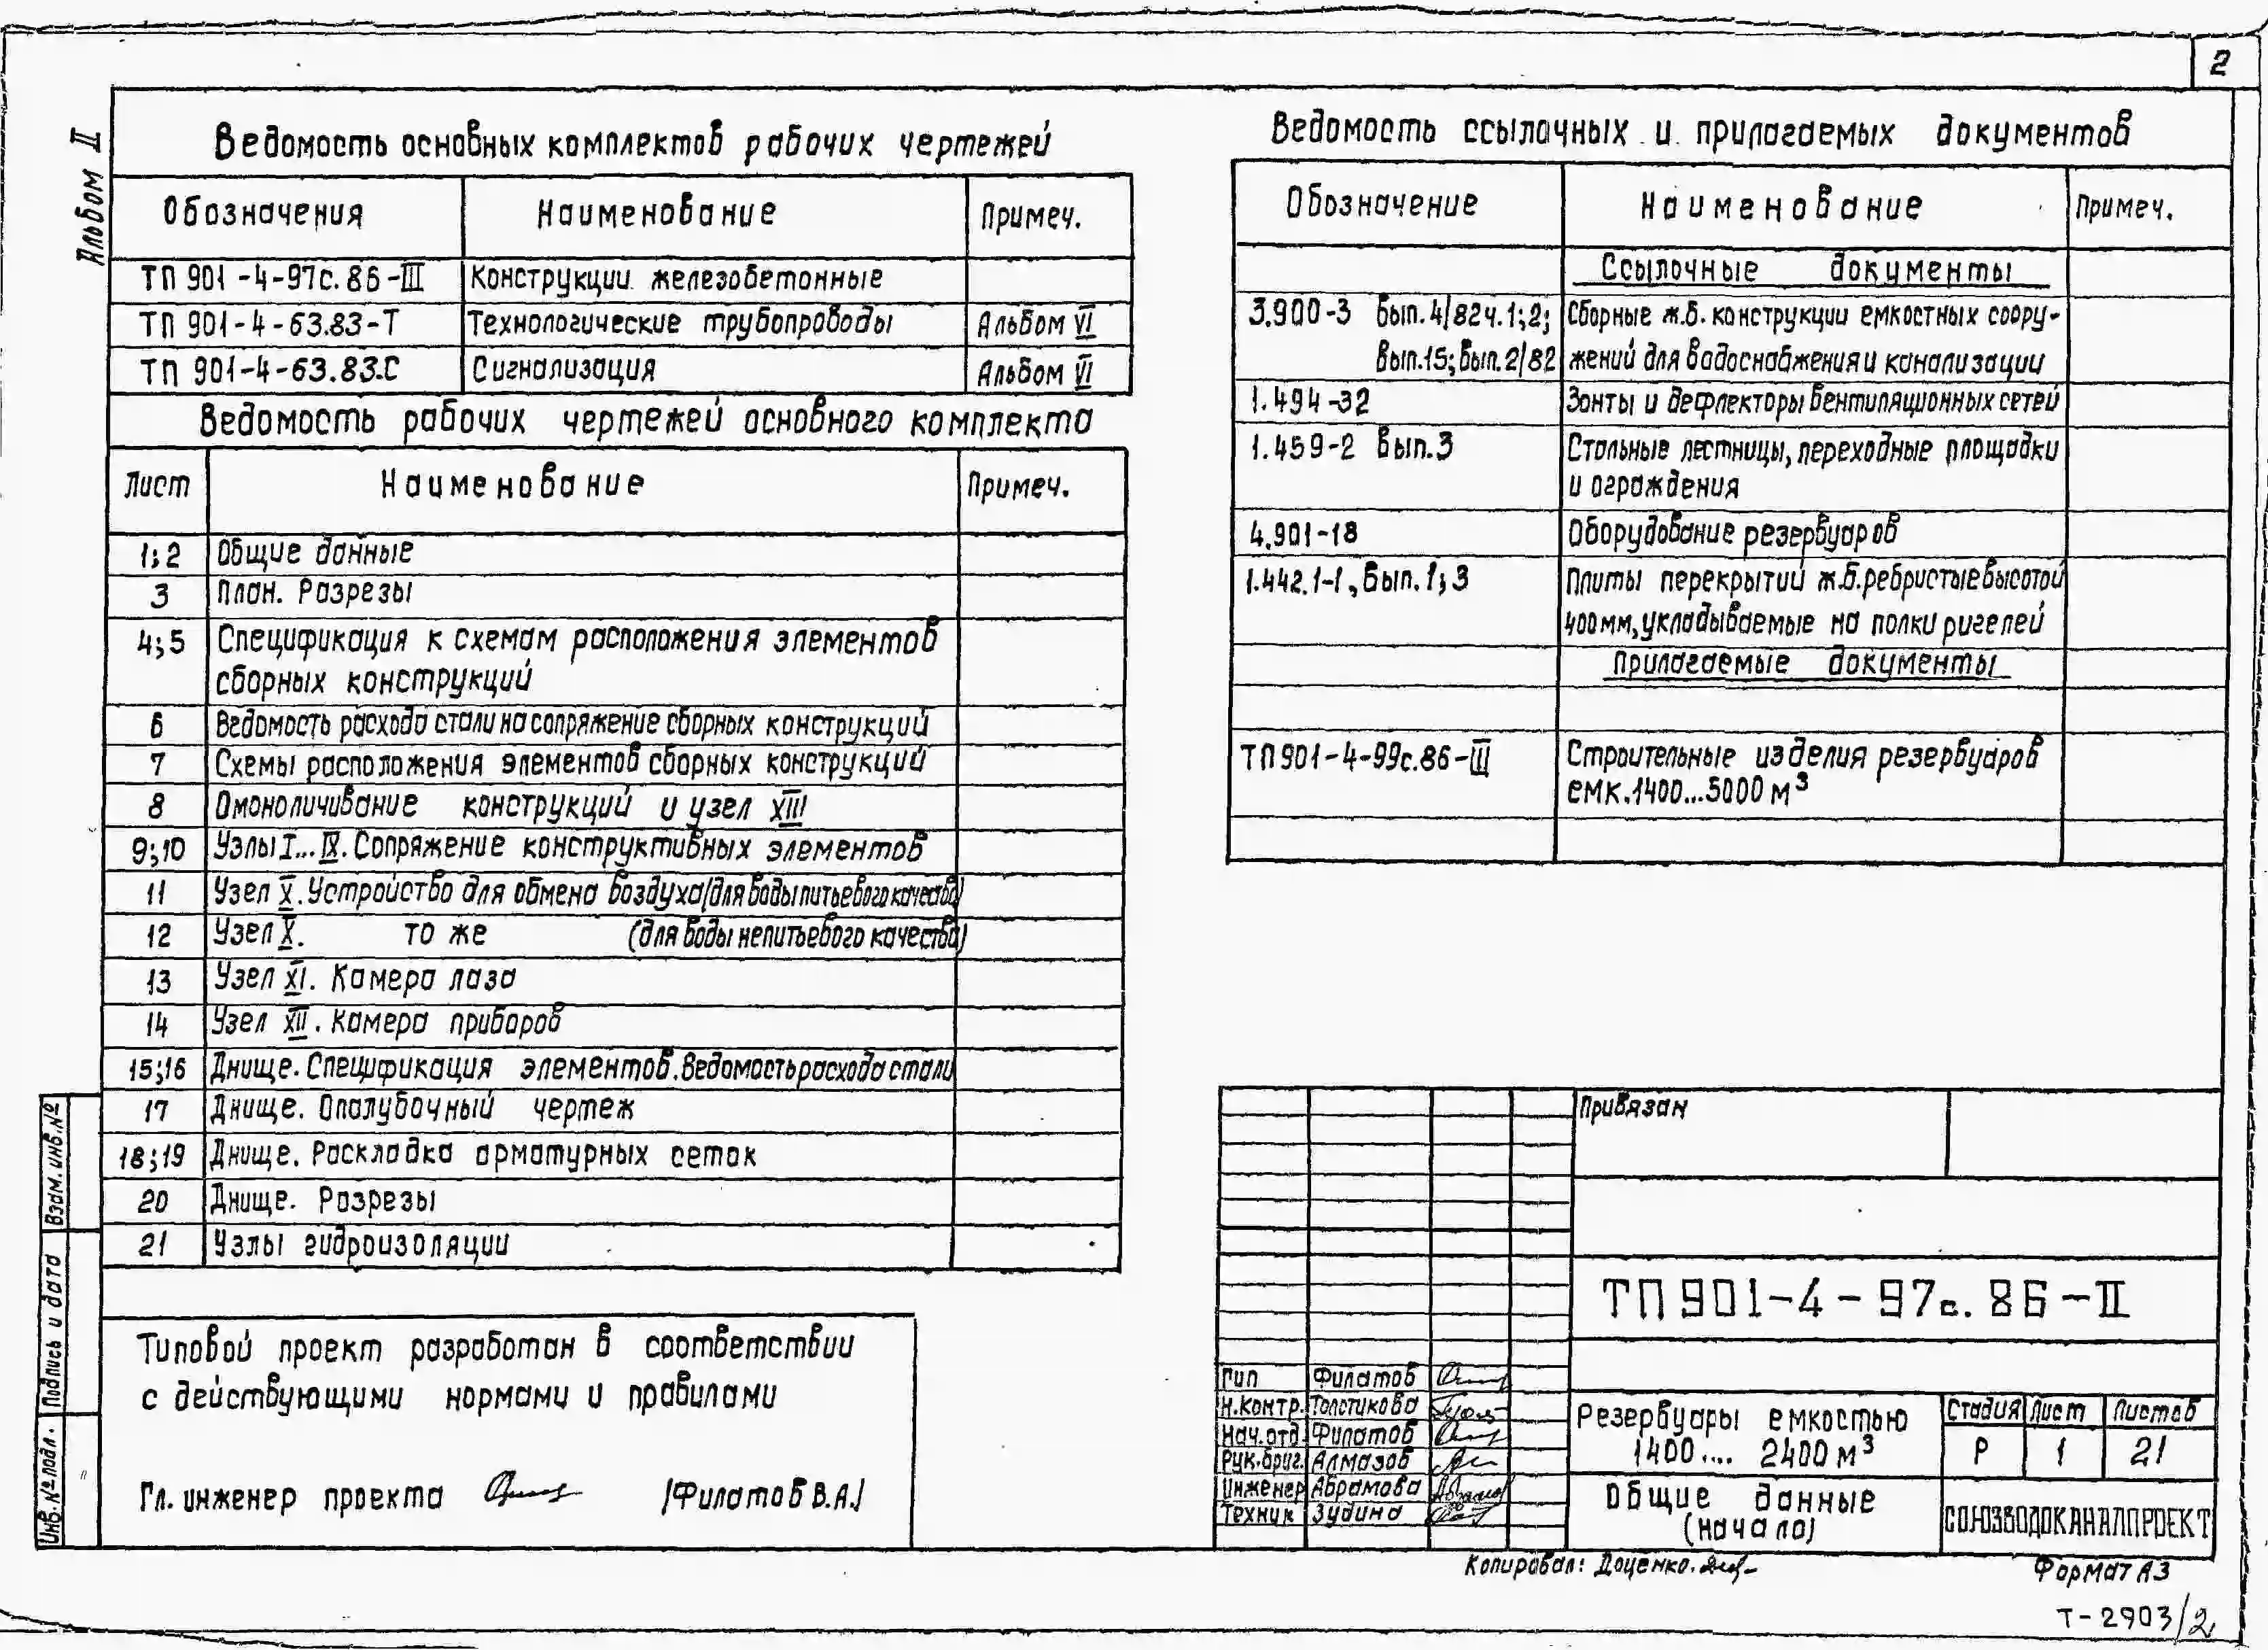 2
Альбом II
Ведомость основных комплектов рабочих чертежей
Обозначения Наименование Примеч.
ТП 901-4-97с.86-III Конструкции железобетонные
ТП 901-4-63.83-Т Технологические трубопроводы Альбом VI
ТП 901-4-63.83.С Сигнализация Альбом VI
Ведомость рабочих чертежей основного комплекта
Лист Наименование Примеч.
1;2 Общие данные
3 План. Разрезы
4;5 Спецификация к схемам расположения элементов
сборных конструкций
6 Ведомость расхода стали на сопряжение сборных конструкций
7 Схемы расположения элементов сборных конструкций
8 Омоноличивание конструкций и узел XIII
9;10 Узлы I...IX. Сопряжение конструктивных элементов
11 Узел X. Устройство для обмена воздуха (для воды питьевого качества)
12 Узел X. то же (для воды непитьевого качества)
13 Узел XI. Камера лаза
14 Узел XII. Камера приборов
15;16 Днище. Спецификация элементов. Ведомость расхода стали
17 Днище. Опалубочный чертеж
18;19 Днище. Раскладка арматурных сеток
20 Днище. Разрезы
21 Узлы гидроизоляции
Типовой проект разработан в соответствии
с действующими нормами и правилами
Гл. инженер проекта /Филатов В.А./
Взам. инв. №
Подпись и дата
Инв. № подл.
Ведомость ссылочных и прилагаемых документов
Обозначение Наименование Примеч.
Ссылочные документы
3.900-3 Вып. 4/82 ч.1;2; Сборные ж.б. конструкции емкостных соору-
Вып.15; Вып. 2/82 жений для водоснабжения и канализации
1.494-32 Зонты и дефлекторы вентиляционных сетей
1.459-2 Вып.3 Стальные лестницы, переходные площадки
и ограждения
4.901-18 Оборудование резервуаров
1.442.1-1, Вып. 1;3 Плиты перекрытий ж.б. ребристые высотой
400мм, укладываемые на полки ригелей
Прилагаемые документы
ТП 901-4-99с.86-III Строительные изделия резервуаров
емк. 1400...5000 м³
Привязан
ТП 901-4-97с.86-II
Гип Филатов
Н.контр. Толстикова
Нач.отд. Филатов
Рук.бриг. Алмазов
Инженер Абрамова
Техник Зудина
Резервуары емкостью
1400.... 2400 м³
Стадия Лист Листов
Р 1 21
Общие данные
(начало)
СОЮЗВОДОКАНАЛПРОЕКТ
Копировал: Доценко.
Формат А3
Т-2903/2